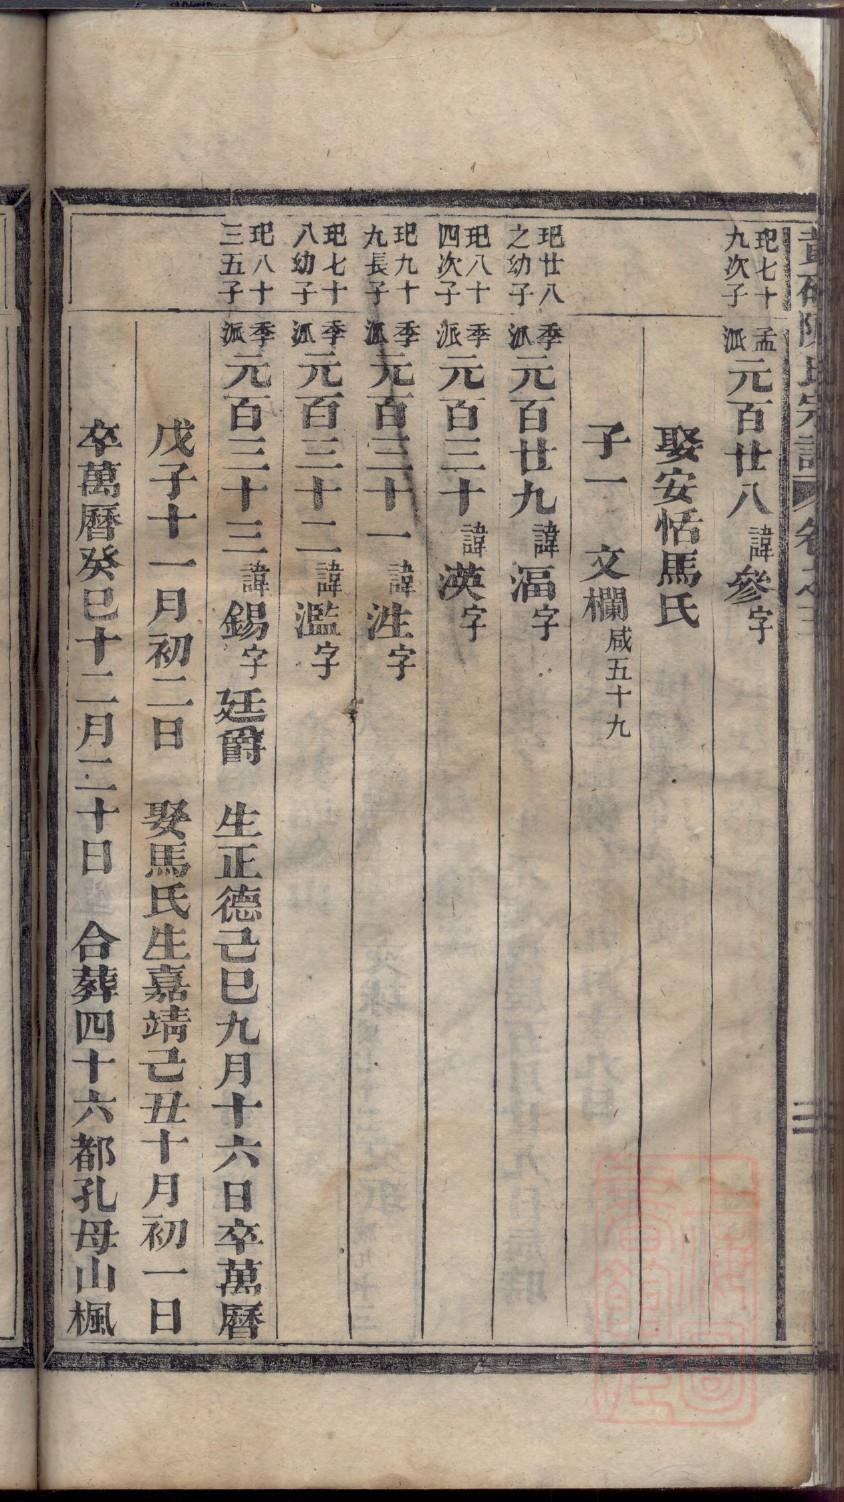 陳氏宗譜 卷之三
玘七十九次子 孟派 元百廿八 諱參字
娶安恬馬氏
子一 文欄 咸五十九
玘廿八之幼子 季派 元百廿九 諱湢字
玘八十四次子 季派 元百三十 諱渶字
玘九十九長子 季派 元百三十一 諱泩字
玘七十八幼子 季派 元百三十二 諱濫字
玘八十三五子 季派 元百三十三 諱錫字 廷爵 生正德己巳九月十六日卒萬曆
戊子十一月初二日 娶馬氏生嘉靖己丑十月初一日
卒萬曆癸巳十二月二十日 合葬四十六都孔母山楓